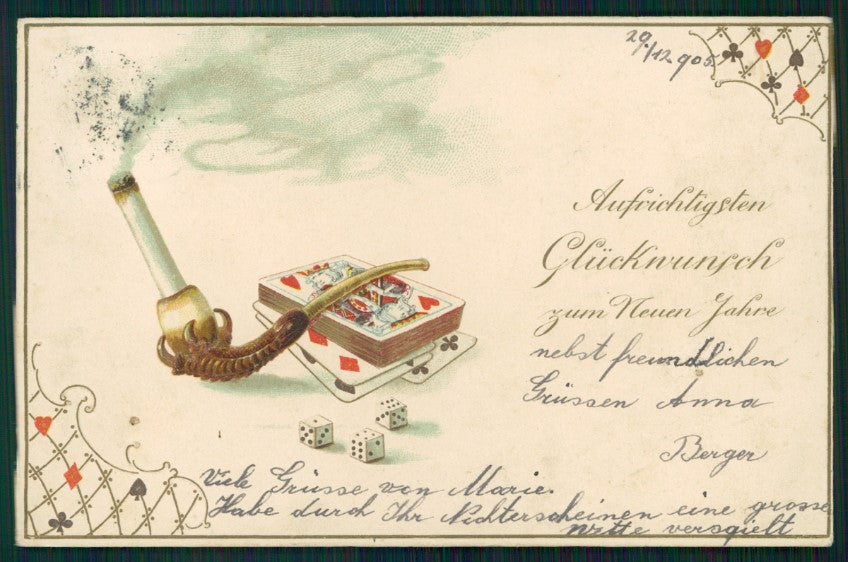 29/12 905
Aufrichtigsten
Glückwunsch
zum Neuen Jahre
nebst freundlichen
Grüssen Anna
Berger
Viele Grüsse von Marie.
Habe durch Ihr Nichterscheinen eine grosse
verspielt